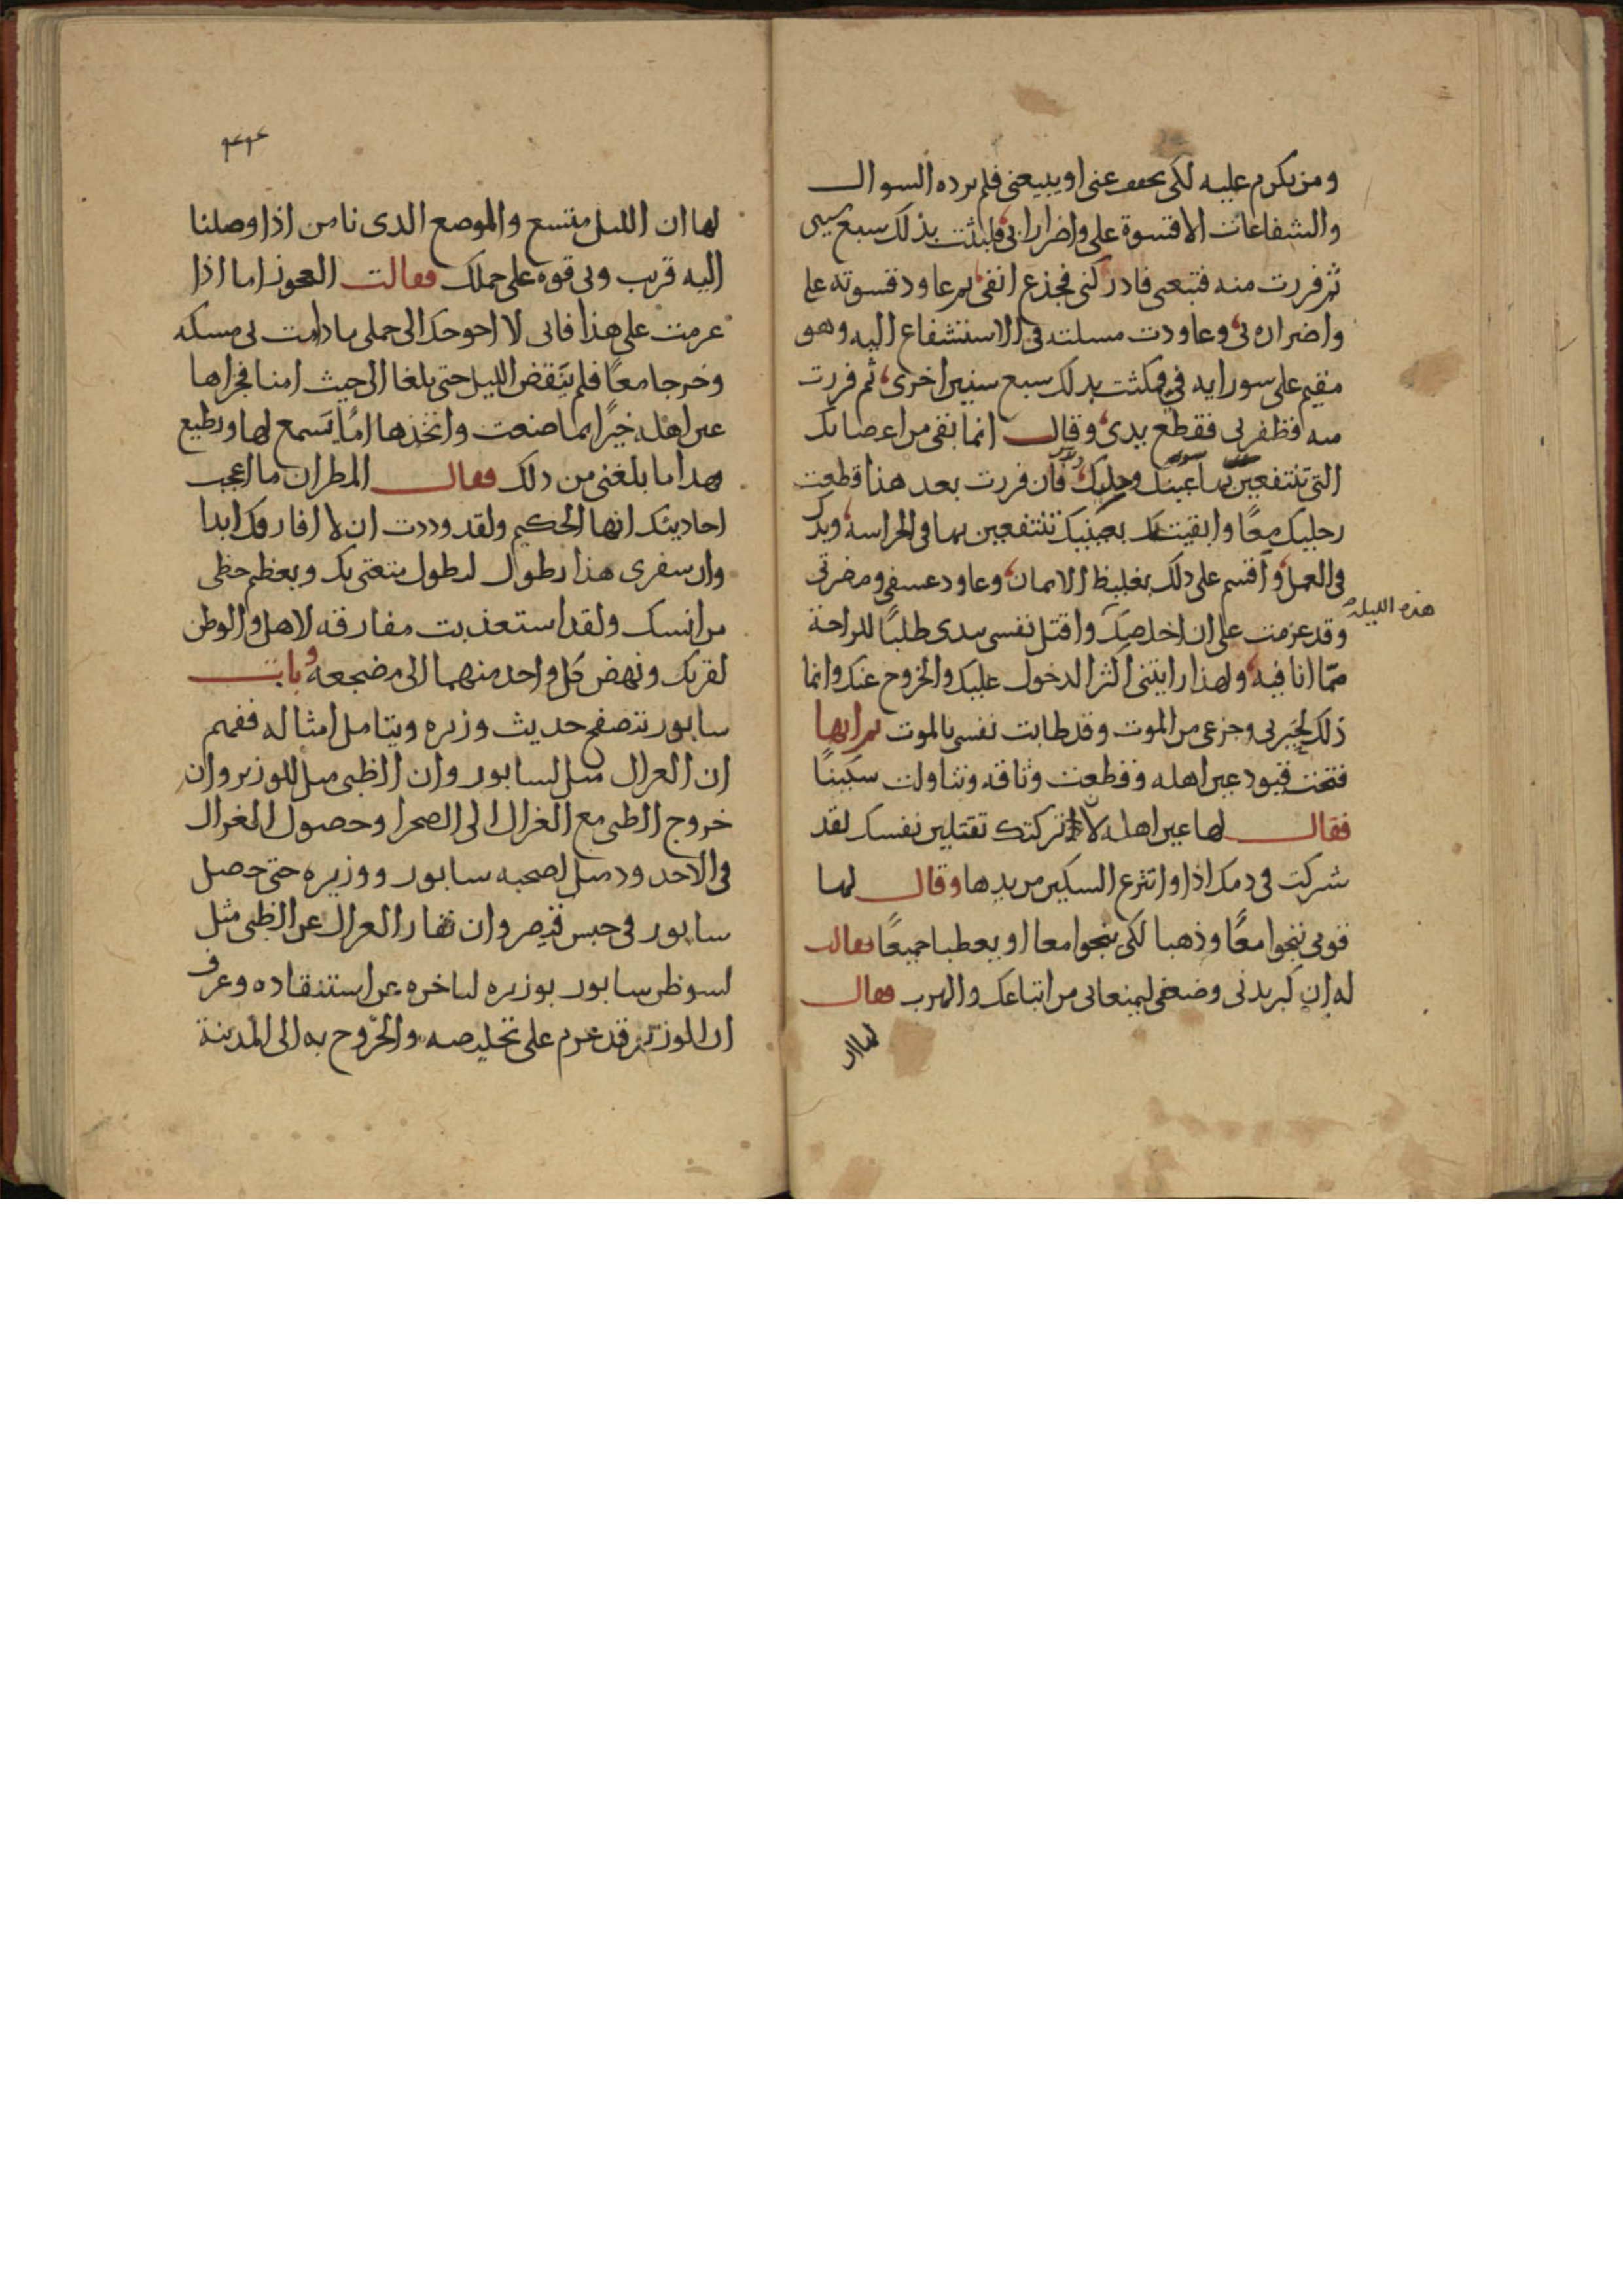 ومن يكرم عليه لكى يخفف عنى او يبيعنى فلم يرده السوال
والشفاعات الا قسوة على واضرارا بى فلبثت بذلك سبع سنين
ثم فررت منه فتبعنى فادركنى فجذع انفى ثم عاود قسوته على
واضراره بى وعاودت مسلته فى الاستشفاع اليه وهو
مقيم على سو رايه فى فمكثت بذلك سبع سنين اخرى ثم فررت
منه فظفر بى فقطع يدى وقال انما بقى من اعضائك
التى تنتفعين بها عينك ورجليك فان فررت بعد هذا قطعت
رجليك معًا وابقيت لك بعينيك تنتفعين بهما فى الحراسة ويدك
فى العمل واقسم على ذلك بغليظ الايمان وعاود عسفى ومضرتى
وقد عزمت على ان اخلصك واقتل نفسى بيدى طلبًا للراحة
هذه الليلة
ممّا انا فيه ولهذا رايتنى اكثر الدخول عليك والخروج عنك وانما
ذلك لحيرتى وجزعى من الموت وقد طابت نفسى بالموت ثم انها
فتحت قيود عين اهله وقطعت وثاقه وتناولت سكينًا
فقال لها عين اهله لا تركتك تقتلين نفسك لقد
شركت فى دمك اذا وانتزع السكين من يدها وقال لها
قومى ننجوا معًا وذهبا لكى ينجوا معا او يعطبا جميعًا فقالت
له ان كبر بدنى وضعفى ليمنعانى من اتباعك والهرب فقال
لها ان
٤٢٤
لها ان الليل متسع والموضع الذى نامن اذا وصلنا
اليه قريب وبى قوه على حملك فقالت العجوز اما اذا
عزمت على هذا فانى لا احوجك الى حملى ما دامت بى مسكه
وخرجا معًا فلم ينقض الليل حتى بلغا الى حيث امنا فجزاها
عين اهله خيرًا بما صنعت واتخذها امًا يسمع لها ويطيع
فهذا ما بلغنى من ذلك فقال المطران ما اعجب
احاديثك ايها الحكيم ولقد وددت ان لا افارقك ابدا
وان سفرى هذا يطول لتطول متعتى بك ويعظم حظى
من انسك ولقد استعذبت مفارقه الاهل والوطن
لقربك ونهض كل واحد منهما الى مضجعه وبات
سابور يتصفح حديث وزيره ويتامل امثاله ففهم
ان الغزال مثل لسابور وان الظبى مثل للوزير وان
خروج الظبى مع الغزال الى الصحرا وحصول الغزال
فى الاخدود مثل لصحبه سابور ووزيره حتى حصل
سابور فى حبس قيصر وان نفار الغزال عن الظبى مثل
لسو ظن سابور بوزيره لتاخره عن استنقاده وعرف
ان الوزير قد عزم على تخليصه والخروج به الى المدينة